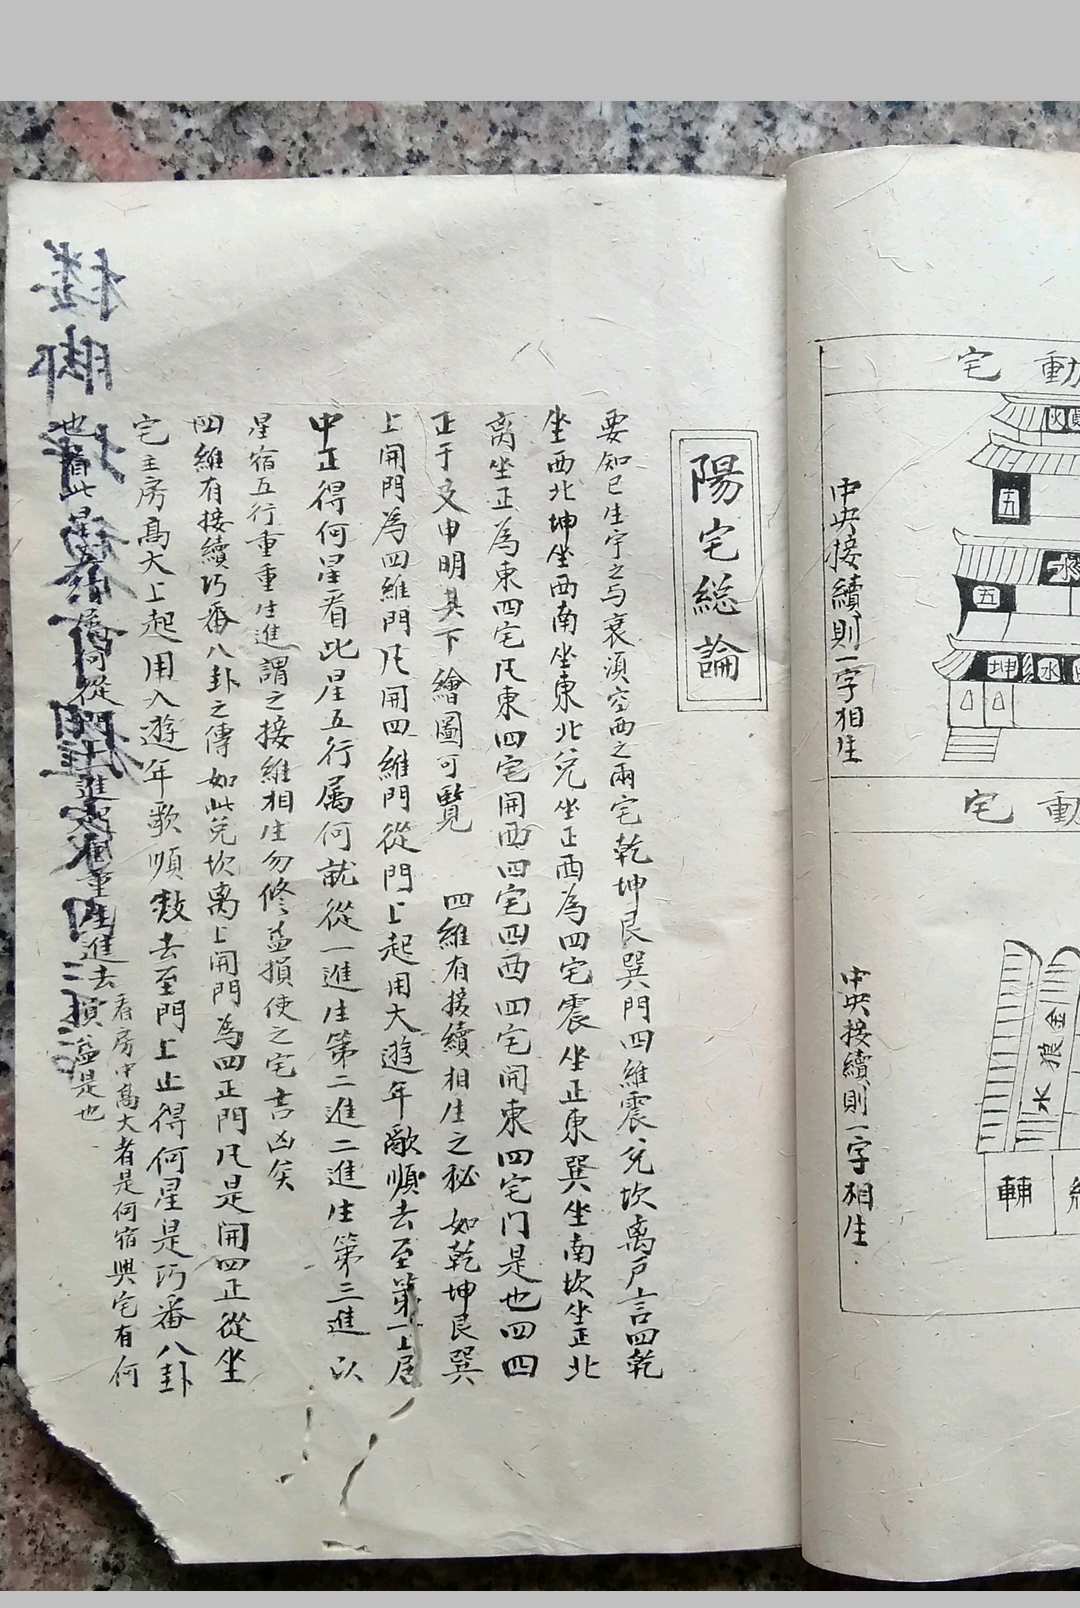 動宅
火
五
水
五
坤
水
中央接續則一字相生
動宅
金
狼
水
輔
中央接續則一字相生
陽宅総論
要知已生宇之与衰湏空西之兩宅乾坤艮巽門四維震兌坎离户言四乾
坐西北坤坐西南坐東北兌坐正西為四宅震坐正東巽坐南坎坐正北
离坐正為東四宅凡東四宅開西四宅四西四宅開東四宅门是也四四
正于文申明其下繪圖可覽 四維有接續相生之秘如乾坤艮巽
上開門為四維門凡開四維門從門上起用大遊年歌順去至第一上层
中正得何星看此星五行属何就從一進生第二進二進生第三進以
星宿五行重重生進謂之接維相生勿修益損使之宅言凶矣
四維有接續巧番八卦之傳如此兌坎离上開門為四正門凡是開四正從坐
宅主房高大上起用入遊年歌順数去至門上止得何星是巧番八卦
看房中高大者是何宿興宅有何
也看此星 属何從 進 重生進去損益是也